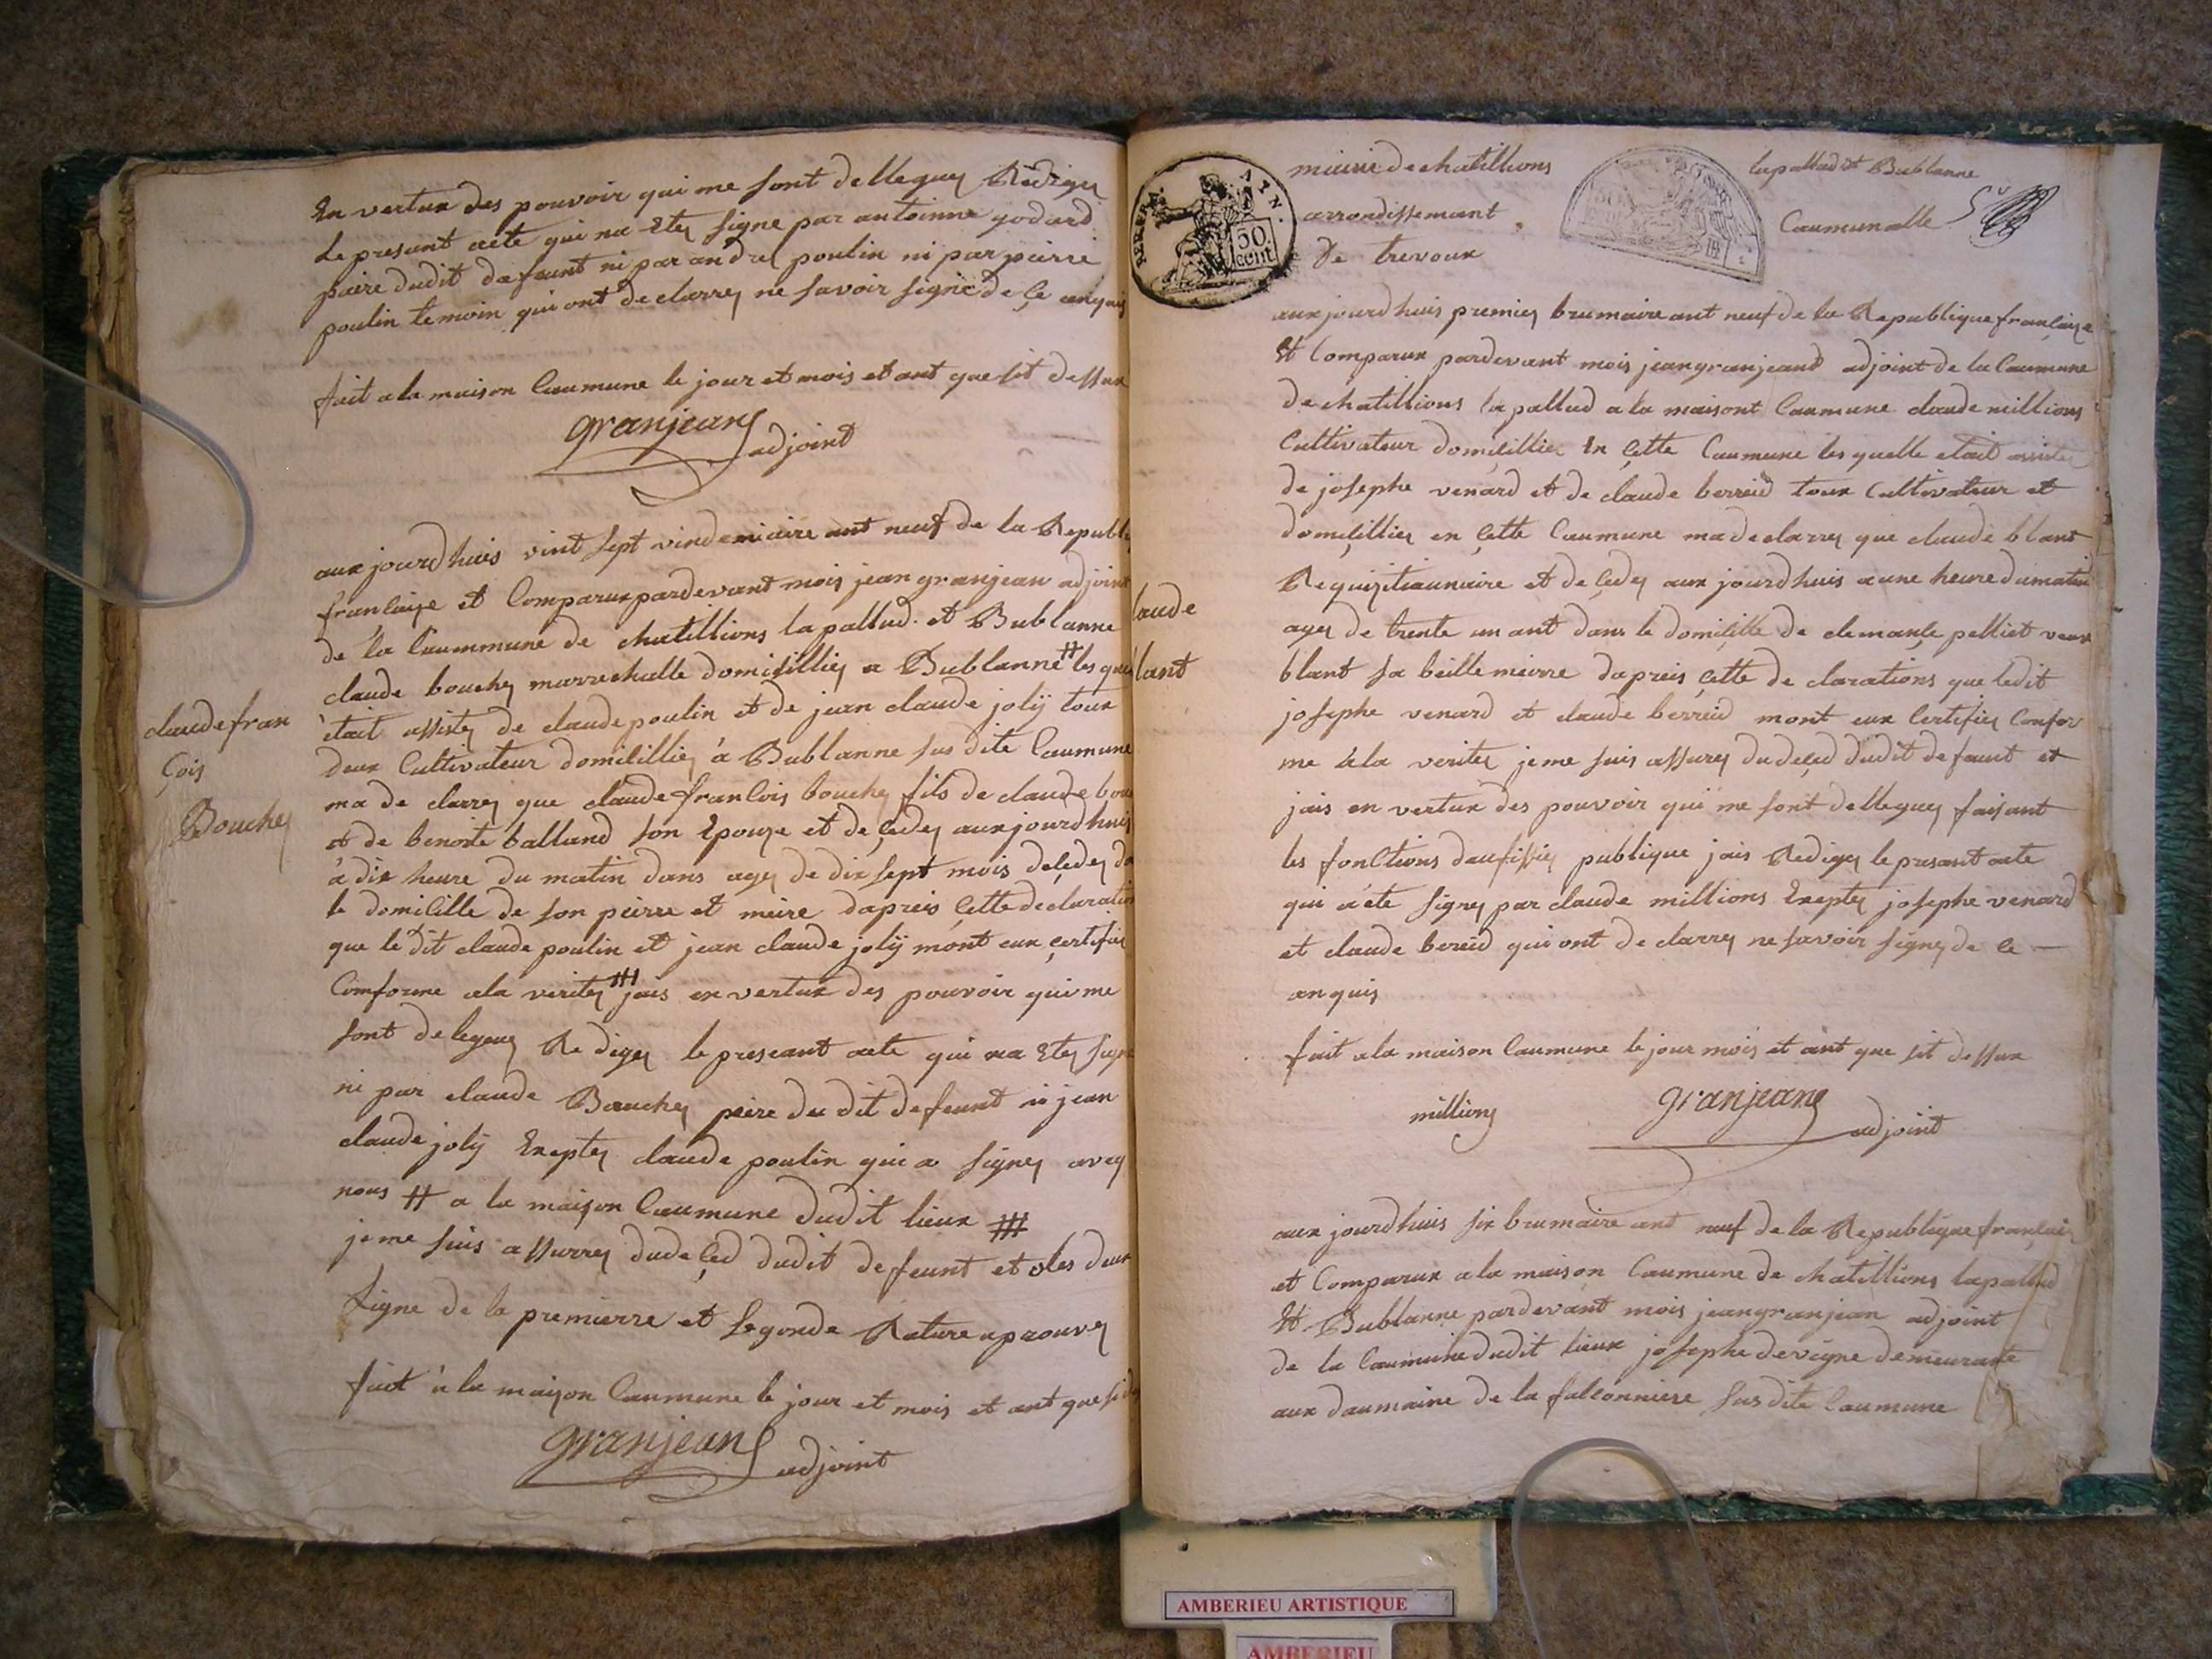 En vertux des pouvoir qui me sont delleguey Rediger
Le presant acte qui na Etey signe par antoinne godard
paire dudit defeunt ni par andrey poulin ni par pierre
poulin temoin qui ont declarrey ne savoir signe de çe anquis
fait a la maison Caumune le jour et mois et ant que sit dessux
granjean
adjoint
aux jourdhuis vint sept vindemiaire ant neuf de la Republi
françaize et Comparux pardevant mois jean granjean adjoint
de la Caummune de chatillions la pallud et Bublanne
claude bouchey marrechalle domisilliey a Bublanne # les quel
était assistey de claude poulin et de jean claude jolÿ toux
deux Cultivateur domisilliey à Bublanne sus dite Caumune
claude fran
çois
Bouchey
ma declarrey que claude françois bouchey fils de claude bou
et de benoite balland son Epouze et de çedey aux jourdhuis
à dix heure du matin dans agey de dix sept mois deçedey da
le domiçille de son peirre et meire dapreis çette declaration
que le dit claude poulin et jean claude jolÿ mont eux çertifiey
Comforme a la veritey ### jais en vertux des pouvoir qui me
sont deleguey Redigey le preseant acte qui na Etey signe
ni par claude Bauchey peire du dit defeunt ni jean
claude jolÿ Exeptey claude poulin qui a signey avey
nous # a la maison Caumune dudit lieux ###
je me suis assurrey dudeçed dudit defeunt et les deux
signe de la premierre et segonde Rature aprouvey
fait à la maison Caumune le jour et mois et ant que si d
granjean
adjoint
mairie de chatillions
la pallud et Bublanne
arrondissemant
Caumunalle
de trevoux
AIN.
50
cent.
aux jourdhuis premiey brumaire ant neuf de la Republique françaize
Et Comparux pardevant mois jean granjeand adjoint de la Caumune
de chatillions la pallud a la maisont Caumune claude millions
Cultivateur domiçilliez En çette Caumune les quelle etait assistey
de josephe venard et de claude berreid toux Cultivateur et
domiçilliey en çette Caumune ma declarrey que claude blant
laude
lant
Requizitiaunaire et de çedey aux jourdhuis a une heure du matin
agey de trente un ant dans le domiçille de clemançe pelliet veux
blant sa beille meirre dapreis çette de clarations que ledit
josephe venard et claude berreid mont eux Certifiey Confor
me à la veritey je me suis assurey du deçed dudit defeunt et
jais en vertux des pouvoir qui me sont delleguey faisant
les fonctions daufissiey publique jais Redigey le presant acte
qui a éte signey par claude millions Exeptey josephe venard
et claude bereid qui ont de clarrey ne savoir signey de ce
anquis
fait a la maison Caumune le jour mois et ant que sit dessux
millions
granjean
adjoint
aux jourdhuis six brumaire ant neuf de la Republique françai
et Comparux a la maison Caumune de chatillions lapallud
Et Bublanne pardevant mois jean granjean adjoint
de la Caumune dudit lieux josephe devigne demeurante
aux daumaine de la falconniere sus dite Caumune
AMBERIEU ARTISTIQUE
AMBERIEU